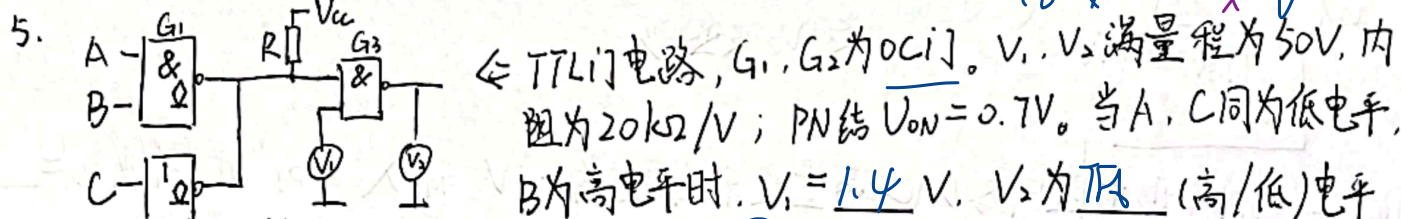 5.
G1
Vcc
A
&
R
G3
B
&
C
1
V1
V2
← TTL门电路,G1、G2为OC门。V1、V2满量程为50V,内
阻为20kΩ/V;PN结UON=0.7V。当A、C同为低电平,
B为高电平时,V1=1.4V,V2为低(高/低)电平